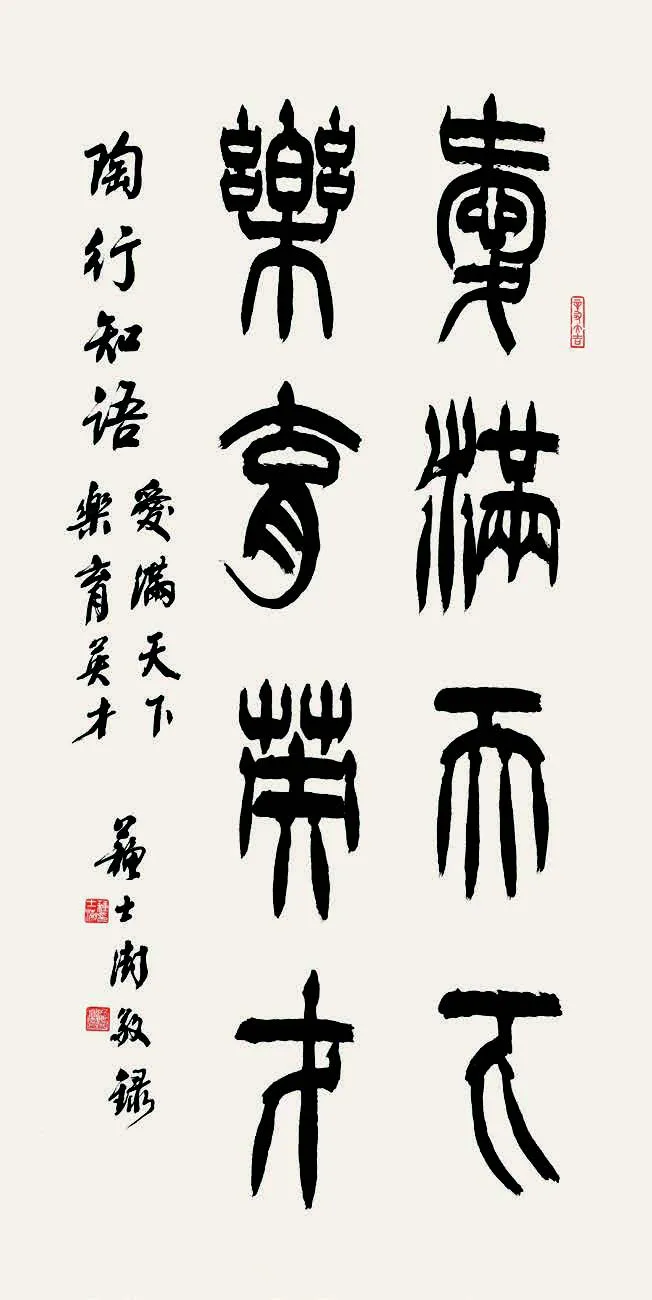 愛滿天下
樂育英才
陶行知语
愛滿天下
樂育英才
蘇士澍敬録